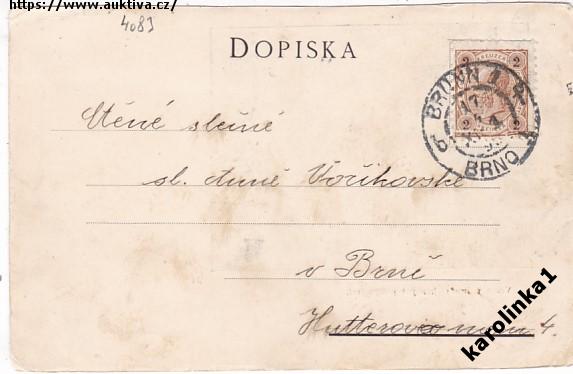 https://www.auktiva.cz/
4083
DOPISKA
2 KREUZER 2
BRÜNN 1
17
BRNO
Ctěné slečně
sl. Anně Voříkovské
v Brně
4.
karolinka1